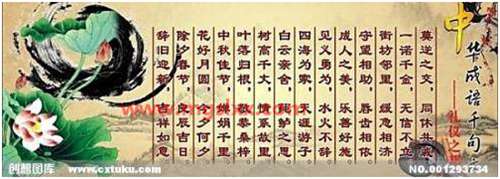 中华成语千句
——礼仪之
莫逆之交，同休共戚
一诺千金，无信不立
街坊邻里，缓急相济
守望相助，唇齿相依
成人之美，乐善好施
见义勇为，水火不辞
四海为家，天涯游子
白云亲舍，莼鲈之思
树高千丈，情系故里
叶落归根，敬恭桑梓
中秋佳节，婵娟千里
花好月圆，今夕何夕
除夕春节，良辰吉日
辞旧迎新，吉祥如意
创想图库 www.cxtuku.com
NO.001293734